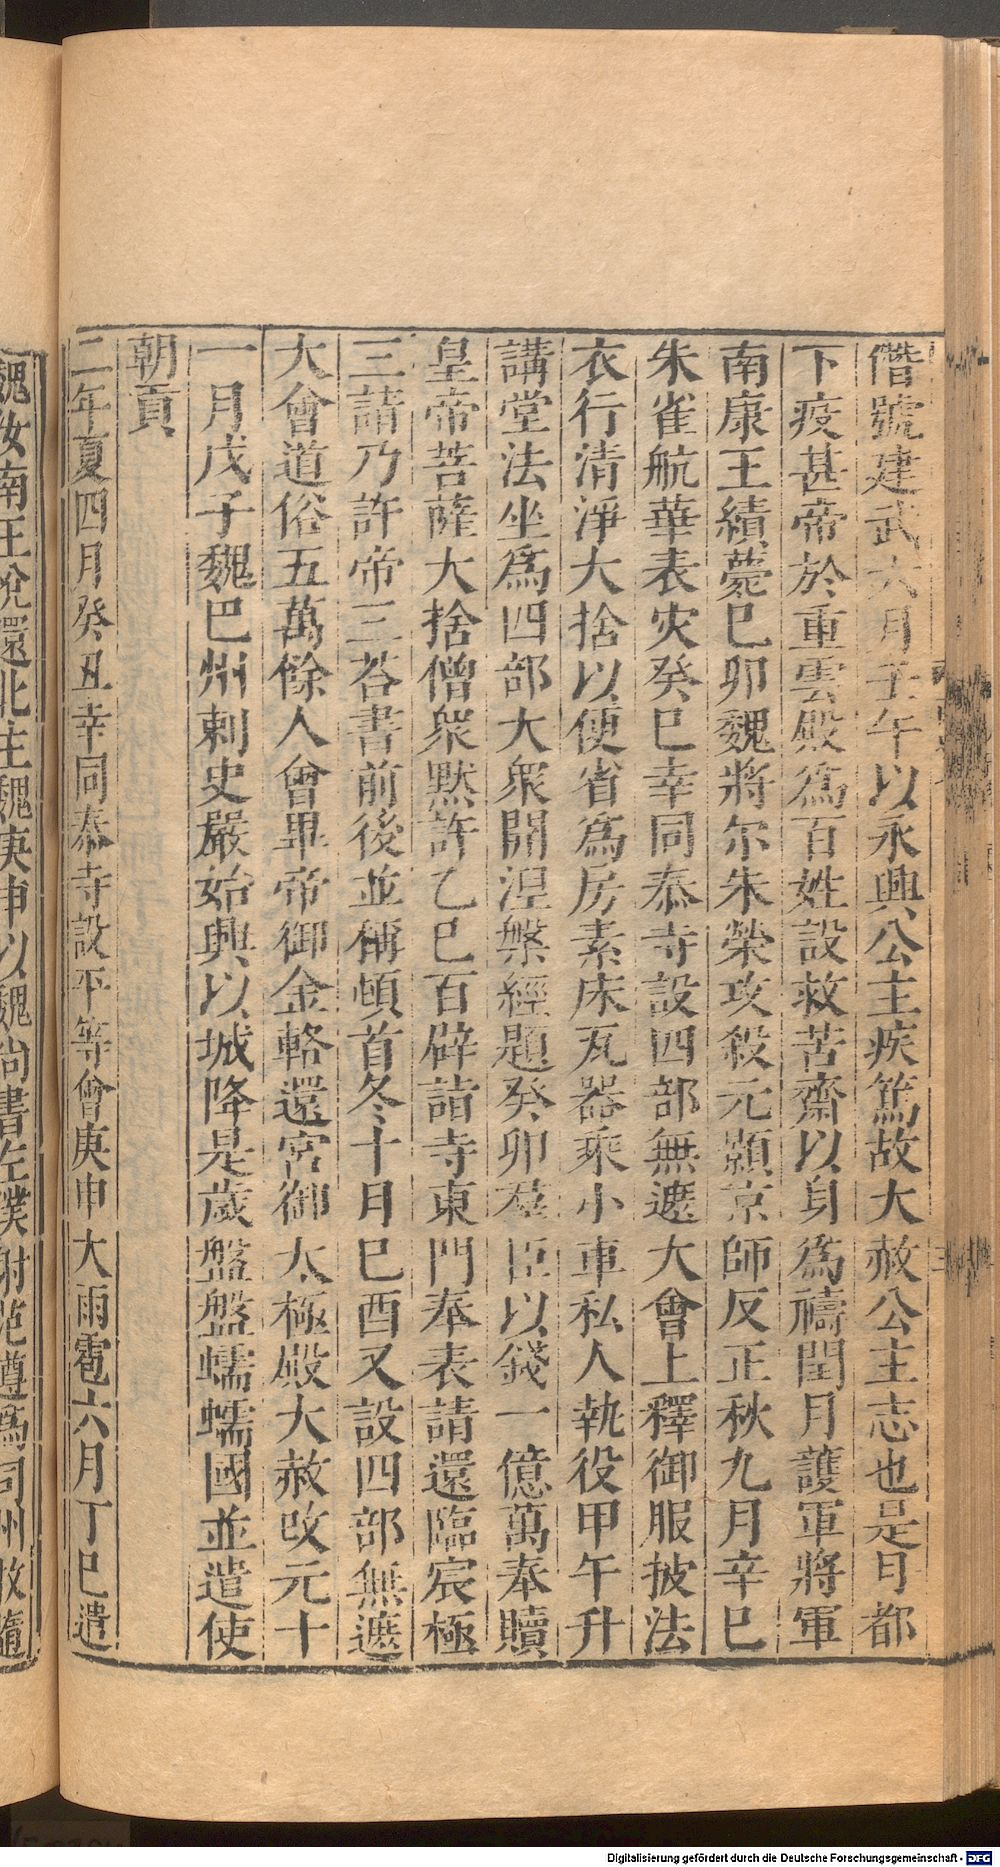 僭號建武六月壬午以永興公主疾篤故大赦公主志也是日都
下疫甚帝於重雲殿爲百姓設救苦齋以身爲禱閏月護軍將軍
南康王績薨巳卯魏將尔朱榮攻殺元顥京師反正秋九月辛巳
朱雀航華表灾癸巳幸同泰寺設四部無遮大會上釋御服披法
衣行清淨大捨以便省爲房素床瓦器乘小車私人執役甲午升
講堂法坐爲四部大衆開涅槃經題癸卯羣臣以錢一億萬奉贖
皇帝菩薩大捨僧衆默許乙巳百辟詣寺東門奉表請還臨宸極
三請乃許帝三荅書前後並稱頓首冬十月巳酉又設四部無遮
大會道俗五萬餘人會畢帝御金輅還宮御太極殿大赦改元十
一月戊子魏巴州刺史嚴始興以城降是歲盤盤蠕蠕國並遣使
朝貢
二年夏四月癸丑幸同泰寺設平等會庚申大雨雹六月丁巳遣
魏汝南王悅還北主魏庚申以魏尚書左僕射范遵爲司州牧隨
Digitalisierung gefördert durch die Deutsche Forschungsgemeinschaft - DFG